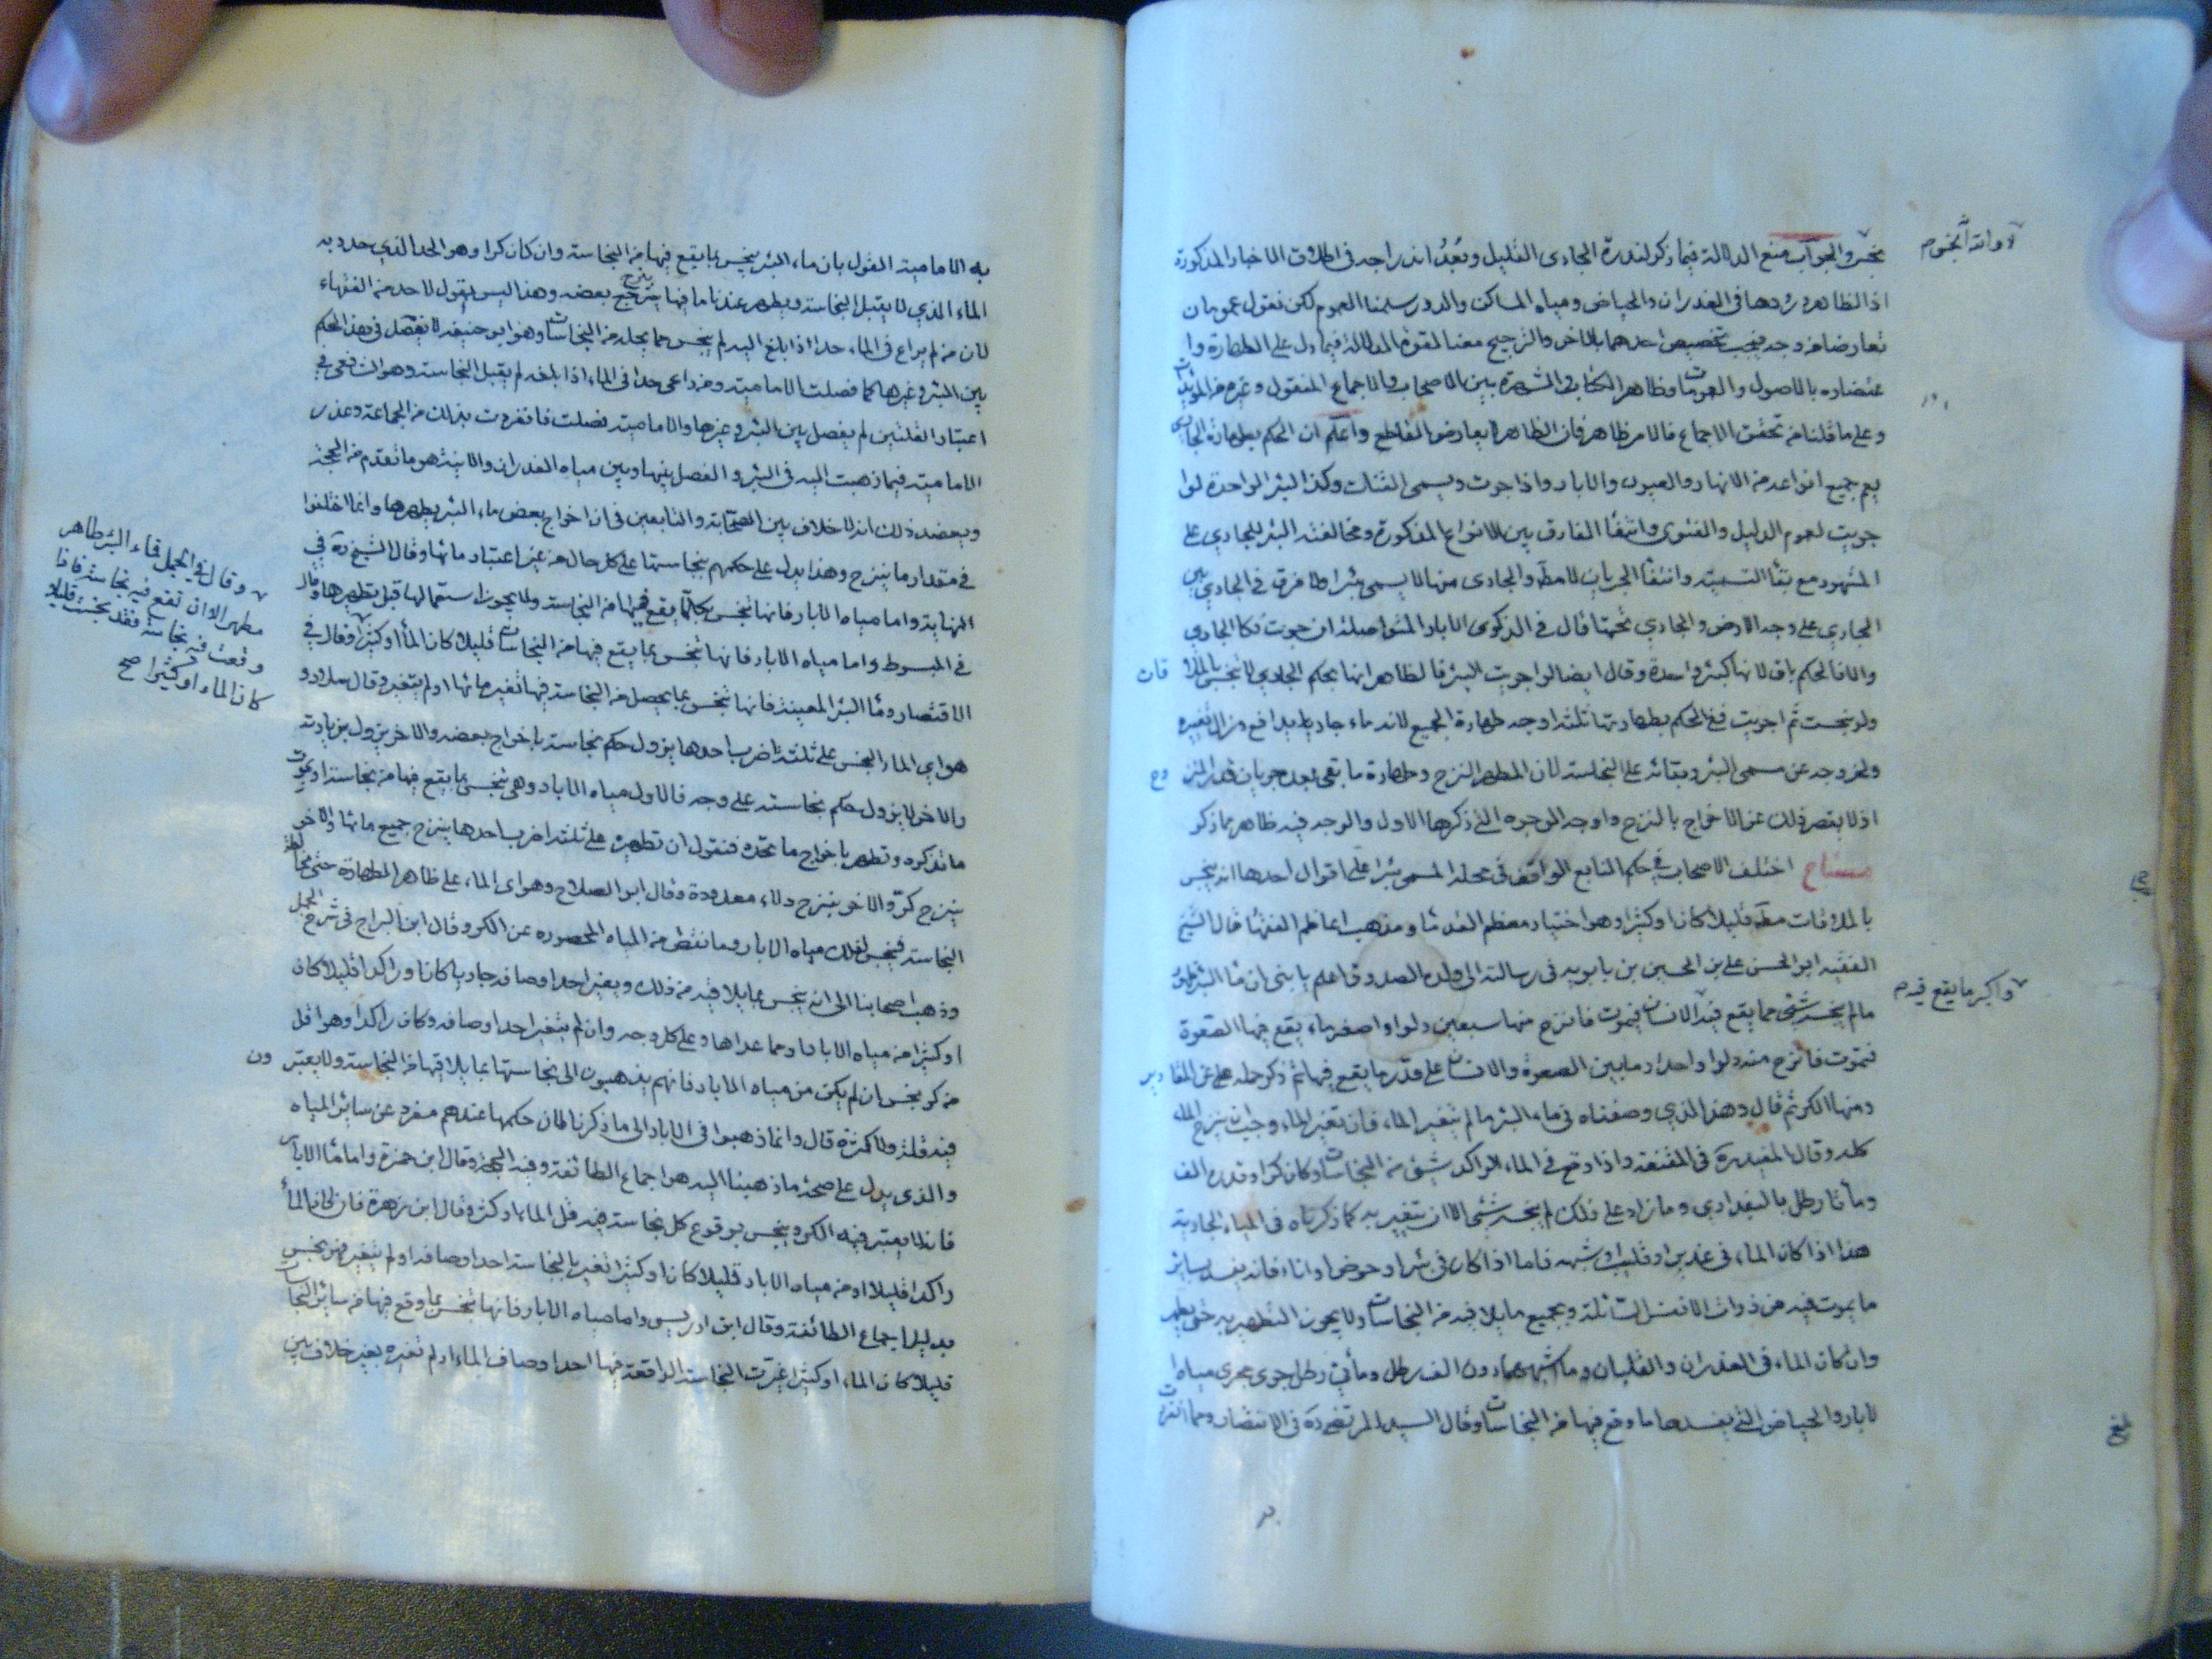 نجس والجواب منع الدلالة فيما ذكر لندرة الجاري القليل وبُعدُ اندراجه في اطلاق الاخبار المذكورة
اذ الظاهر ورودها في الغدران والحياض ومياه المساكن والدور سلمنا العموم لكن نقول عمومان
تعارضا من وجه فيجب تخصيص احدهما بالاخر والترجيح معنا لقوة الدلالة فيما دل على الطهارة وا
عتضاده بالاصول والعمومات وظاهر الكتاب والشهرة بين الاصحاب والاجماع المنقول وغيره من المؤيدات
وعلى ما قلنا من تحقق الاجماع فالامر ظاهر فان الظاهر لا يعارض القاطع واعلم ان الحكم بطهارة الجاري
يعم جميع انواعه من الانهار والعيون والابار واذا جرت ويسمى القنات وكذا البئر الواحدة لو ا
جريت لعموم الدليل والفتوى وانتفأ الفارق بين الانواع المذكورة ومخالفته البئر للجاري على
المشهور مع بقأ التسمية وانتفأ الجريان لا مطلقا والجاري منها لا يسمى بئرا ولا فرق في الجاري بين
الجاري على وجه الارض والجاري تحتها قال في الذكرى الابار المتواصلة ان جرت فكالجاري
والا فالحكم باق لانها كبئر واحدة وقال ايضا لو اجريت البئر فالظاهر انها بحكم الجاري لا تنجس بالملا قات
ولو نجست ثم اجريت ففي الحكم بطهارتها ثلثة اوجه طهارة الجميع لانه ماء جار تدافع وزال تغيره
ولخروجه عن مسمى البئر وبقائه على النجاسة لان المطهر النزح وطهارة ما بقي بعد جريان قدر المنز وح
اذ لا يقصر ذلك عن الاخراج بالنزح واوجه الوجوه التي ذكرها الاول والوجه فيه ظاهر مما ذكر
مفتاح اختلف الاصحاب في حكم النابع الواقف في محله المسمى بئرا على اقوال احدها انه ينجس
بالملاقات مطلقا قليلا كان او كثيرا وهو اختيار معظم القدما ومذهب اعاظم الفقها قال الشيخ
الفقيه ابو الحسن علي بن الحسين بن بابويه في رسالته الى ولده الصدوق اعلم يا بني ان مأ البئر طهور
ما لم ينجسه شئ مما يقع فيه الانسان فيموت فانزح منها سبعين دلوا واصغر ماء يقع فيها الصعوة
فتموت فانزح منه دلوا واحدا وما بين الصعوة والانسان على قدر ما يقع فيها ثم ذكر جملة من المقا دير
ومنها الكر ثم قال وهذا الذي وصفناه في ماء البئر ما لم يتغير الماء فان تغير الماء وجب ان ينزح الماء
كله وقال المفيد ره في المقنعة واذا وقع في الماء الراكد شئ من النجاسات وكان كرا وقدره الف
ومأتا رطل بالبغدادي وما زاد على ذلك لم ينجسه شئ الا ان يتغير به كما ذكرناه في المياه الجارية
هذا اذا كان الماء في غدير او قليب وشبهه فاما اذا كان في بئر او حوض او اناء فانه يفسد بسائر
ما يموت فيه من ذوات الانفس السائلة وبجميع ما يلاقيه من النجاسات ولا يجوز التطهير به حتى يطهر
وان كان الماء في الغدران والقلبان وما اشبههما دون الف رطل ومأتي رطل جرى مجرى مياه ا
لابار والحياض التي يفسدها ما وقع فيها من النجاسات وقال السيد المرتضى ره في الانتصار ومما انفردت
لا والله انجزم
واكبر ما يقع فيه م
بلغ
به الامامية القول بان ماء البئر ينجس بما يقع فيها من النجاسة وان كان كرا وهو الحد الذي حدد به
الماء الذي لا يقبل النجاسة ويطهر عندنا ما فيها بنزح بعضه وهذا ليس بقول لاحد من الفقهاء
لان من لم يراع في الماء حدا اذا بلغ اليه لم ينجس مما يحله من النجاسات وهو ابو حنيفة لا يفصل في هذا الحكم
بين البئر وغيرها كما فصلت الامامية ومن راعى حدا في الماء اذا بلغه لم يقبل النجاسة وهو الشافعي في
اعتبار القلتين لم يفصل بين البئر وغيرها والامامية فصلت فانفردت بذلك من الجماعة وعذر
الامامية فيما ذهبت اليه في البئر والفصل بينها وبين مياه الغدران والانية هو ما تقدم من الحجة
ويعضد ذلك انه لا خلاف بين الصحابة والتابعين في ان اخراج بعض ماء البئر يطهرها وانما اختلفوا
في مقدار ما ينزح وهذا يدل على حكمهم بنجاستها على كل حال من غير اعتبار مائها وقال الشيخ ره في
النهاية واما مياه الابار فانها تنجس بكل ما يقع فيها من النجاسة ولا يجوز استعمالها قبل تطهيرها وقال
في المبسوط واما مياه الابار فانها تنجس بما يقع فيها من النجاسات قليلا كان المأ او كثيرا وقال في
الاقتصار ومأ البئر المعينة فانها تنجس بما يحصل من النجاسة فيها تغير مائها او لم يتغير وقال سلار و
هو اي الماء النجس على ثلثة اضرب احدها يزول حكم نجاسته باخراج بعضه والاخر يزول بزيادته
والاخر لا يزول حكم نجاسته على وجه فالاول مياه الابار وهي تنجس بما يقع فيها من نجاسة او يموت
ما نذكره وتطهر باخراج ما نحده فنقول ان تطهيره على ثلثة اضرب احدها ينزح جميع مائها والاخر
ينزح كر والاخر ينزح دلاء معدودة وقال ابو الصلاح وهو اى الماء على ظاهر الطهارة حتى يخالط
النجاسة فينجس لذلك مياه الابار وما نقص من المياه المحصورة عن الكر وقال ابن البراج في شرح الجمل
وذهب اصحابنا الى انه ينجس بما يلاقيه من ذلك ويغير احد اوصافه جاريا كان او راكدا قليلا كان
او كثيرا من مياه الابار وما عداها وعلى كل وجه وان لم يتغير احد اوصافه وكان راكدا وهو اقل
من كر ينجس ان لم يكن من مياه الابار فانهم يذهبون الى نجاستها بما يلاقيها من النجاسة ولا يعتبر ون
فيه قلة ولا كثرة قال وانما ذهبوا في الابار الى ما ذكرنا لان حكمها عندهم مفرد عن سائر المياه
والذي يدل على صحة ما ذهبنا اليه هو اجماع الطائفة وفيه الحجة وقال ابن حمزة واما مأ الابار
فانه لا يعتبر فيه الكر وينجس بوقوع كل نجاسة فيه قل الماء او كثر وقال ابن زهرة فان كان المأ
راكدا قليلا او من مياه الابار قليلا كان او كثيرا تغير بالنجاسة احد اوصافه او لم يتغير فهو نجس
بدليل اجماع الطائفة وقال ابن ادريس واما مياه الابار فانها تنجس بما وقع فيها من سائر النجاسات
قليلا كان الماء او كثيرا غيرت النجاسة الواقعة فيها احد اوصاف الماء او لم تغيره بغير خلاف بين
وقال في الجمل وماء البئر طاهر
مطهر الا ان تقع فيه نجاسة فاذا
وقعت فيه نجاسة فقد نجست قليلا
كان الماء او كثيرا صح